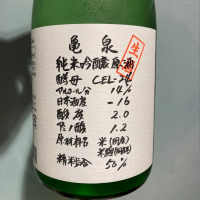 亀泉
生
純米吟醸原酒
酵母 CEL-24
アルコール分 14%
日本酒度 -16
酸度 2.0
アミノ酸 1.2
原材料名 米(国産)
米麹(国産米)
精米歩合 50%